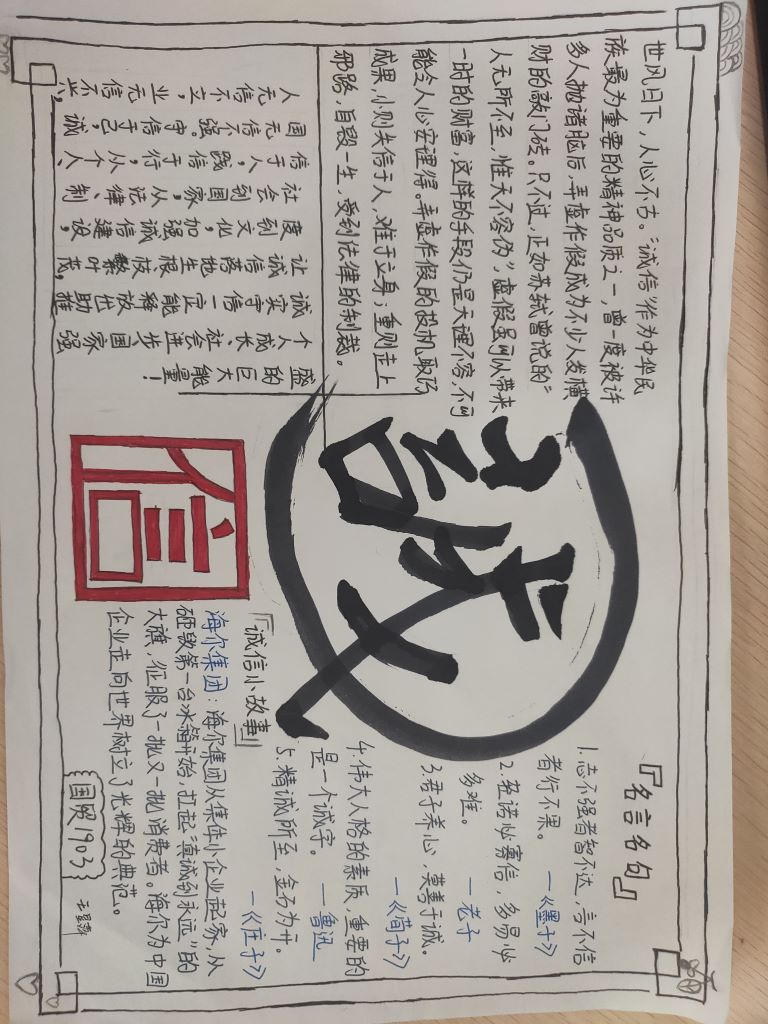 世风日下，人心不古。“诚信”作为中华民
族最为重要的精神品质之一，曾一度被许
多人抛诸脑后，弄虚作假成为不少人发横
财的敲门砖。只不过，正如苏轼曾说的“
人无所不至，惟天不容伪”，虚假虽可以带来
一时的财富，这样的手段仍是天理不容，不可
能令人心安理得。弄虚作假的投机取巧
成果，小则失信于人，难于立身；重则走上
邪路，自毁一生，受到法律的制裁。
人无信不立，业无信不兴，
国无信不强。守信于己，诚
信于人，践信于行，从个人、
社会到国家，从法律、制
度到文化，加强诚信建设，
让诚信落地生根、枝繁叶茂，
诚实守信一定能释放出助推
个人成长、社会进步、国家强
盛的巨大能量！
诚
信
『名言名句』
1.志不强者智不达，言不信
者行不果。 —《墨子》
2.轻诺必寡信，多易必
多难。 —老子
3.君子养心，莫善于诚。
—《荀子》
4.伟大人格的素质，重要的
是一个诚字。 —鲁迅
5.精诚所至，金石为开。
—《庄子》
『诚信小故事』
海尔集团：海尔集团从集体小企业起家，从
砸毁第一台冰箱开始，扛起“真诚到永远”的
大旗，征服了一批又一批消费者。海尔为中国
企业走向世界树立了光辉的典范。
国贸1903